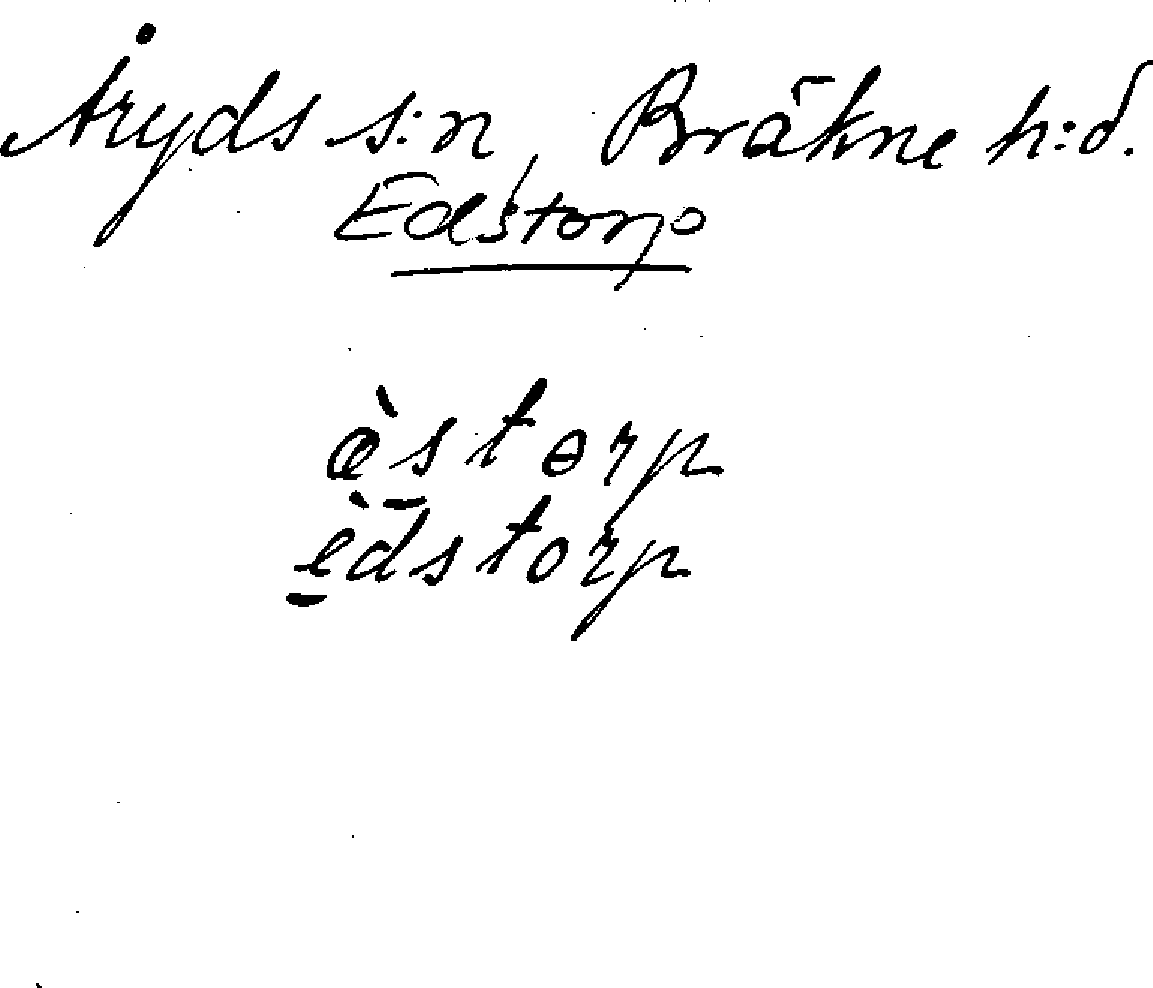 Åryds s:n, Bräkne h:d.
Edstorp
æ̀s̱tɵrp
è̱dstorp